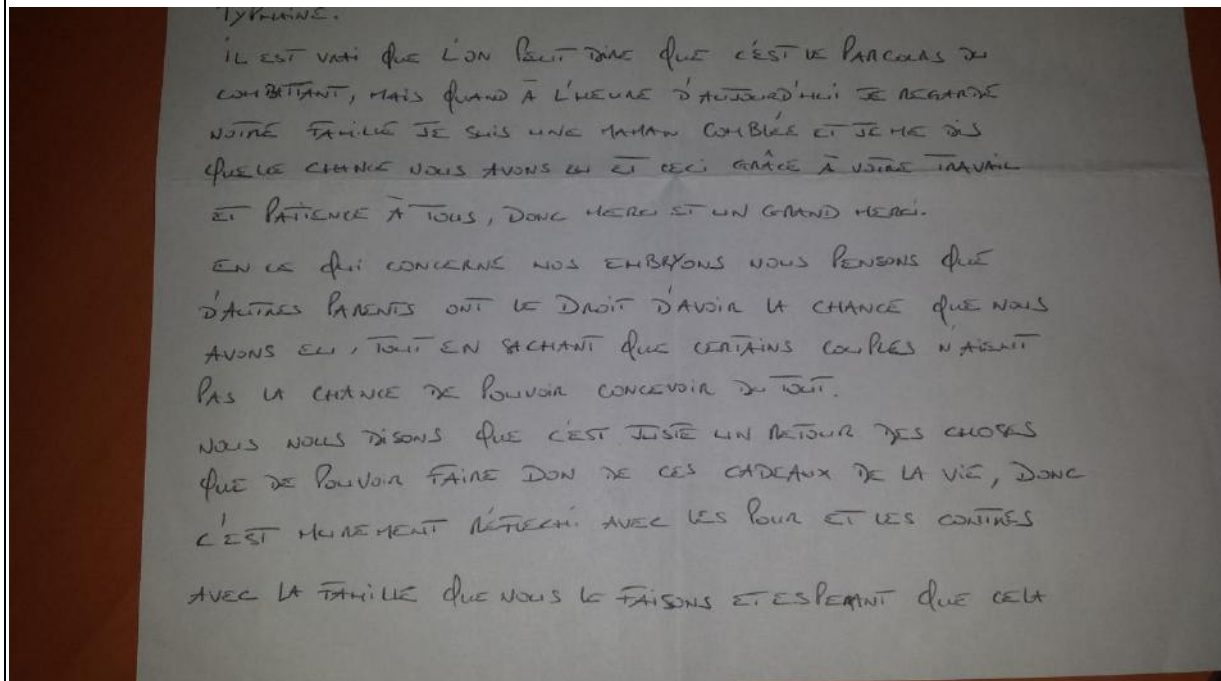 IL EST VRAI QUE L'ON PEUT DIRE QUE C'EST LE PARCOURS DU
COMBATTANT, MAIS QUAND À L'HEURE D'AUJOURD'HUI JE REGARDE
NOTRE FAMILLE JE SUIS UNE MAMAN COMBLÉE ET JE ME DIS
QUELLE CHANCE NOUS AVONS EU ET CECI GRÂCE À VOTRE TRAVAIL
ET PATIENCE À TOUS, DONC MERCI ET UN GRAND MERCI.
EN CE QUI CONCERNE NOS EMBRYONS NOUS PENSONS QUE
D'AUTRES PARENTS ONT LE DROIT D'AVOIR LA CHANCE QUE NOUS
AVONS EU, TOUT EN SACHANT QUE CERTAINS COUPLES N'AIENT
PAS LA CHANCE DE POUVOIR CONCEVOIR DU TOUT.
NOUS NOUS DISONS QUE C'EST JUSTE UN RETOUR DES CHOSES
QUE DE POUVOIR FAIRE DON DE CES CADEAUX DE LA VIE, DONC
C'EST MUREMENT RÉFLECHI AVEC LES POUR ET LES CONTRES
AVEC LA FAMILLE QUE NOUS LE FAISONS ET ESPERANT QUE CELA